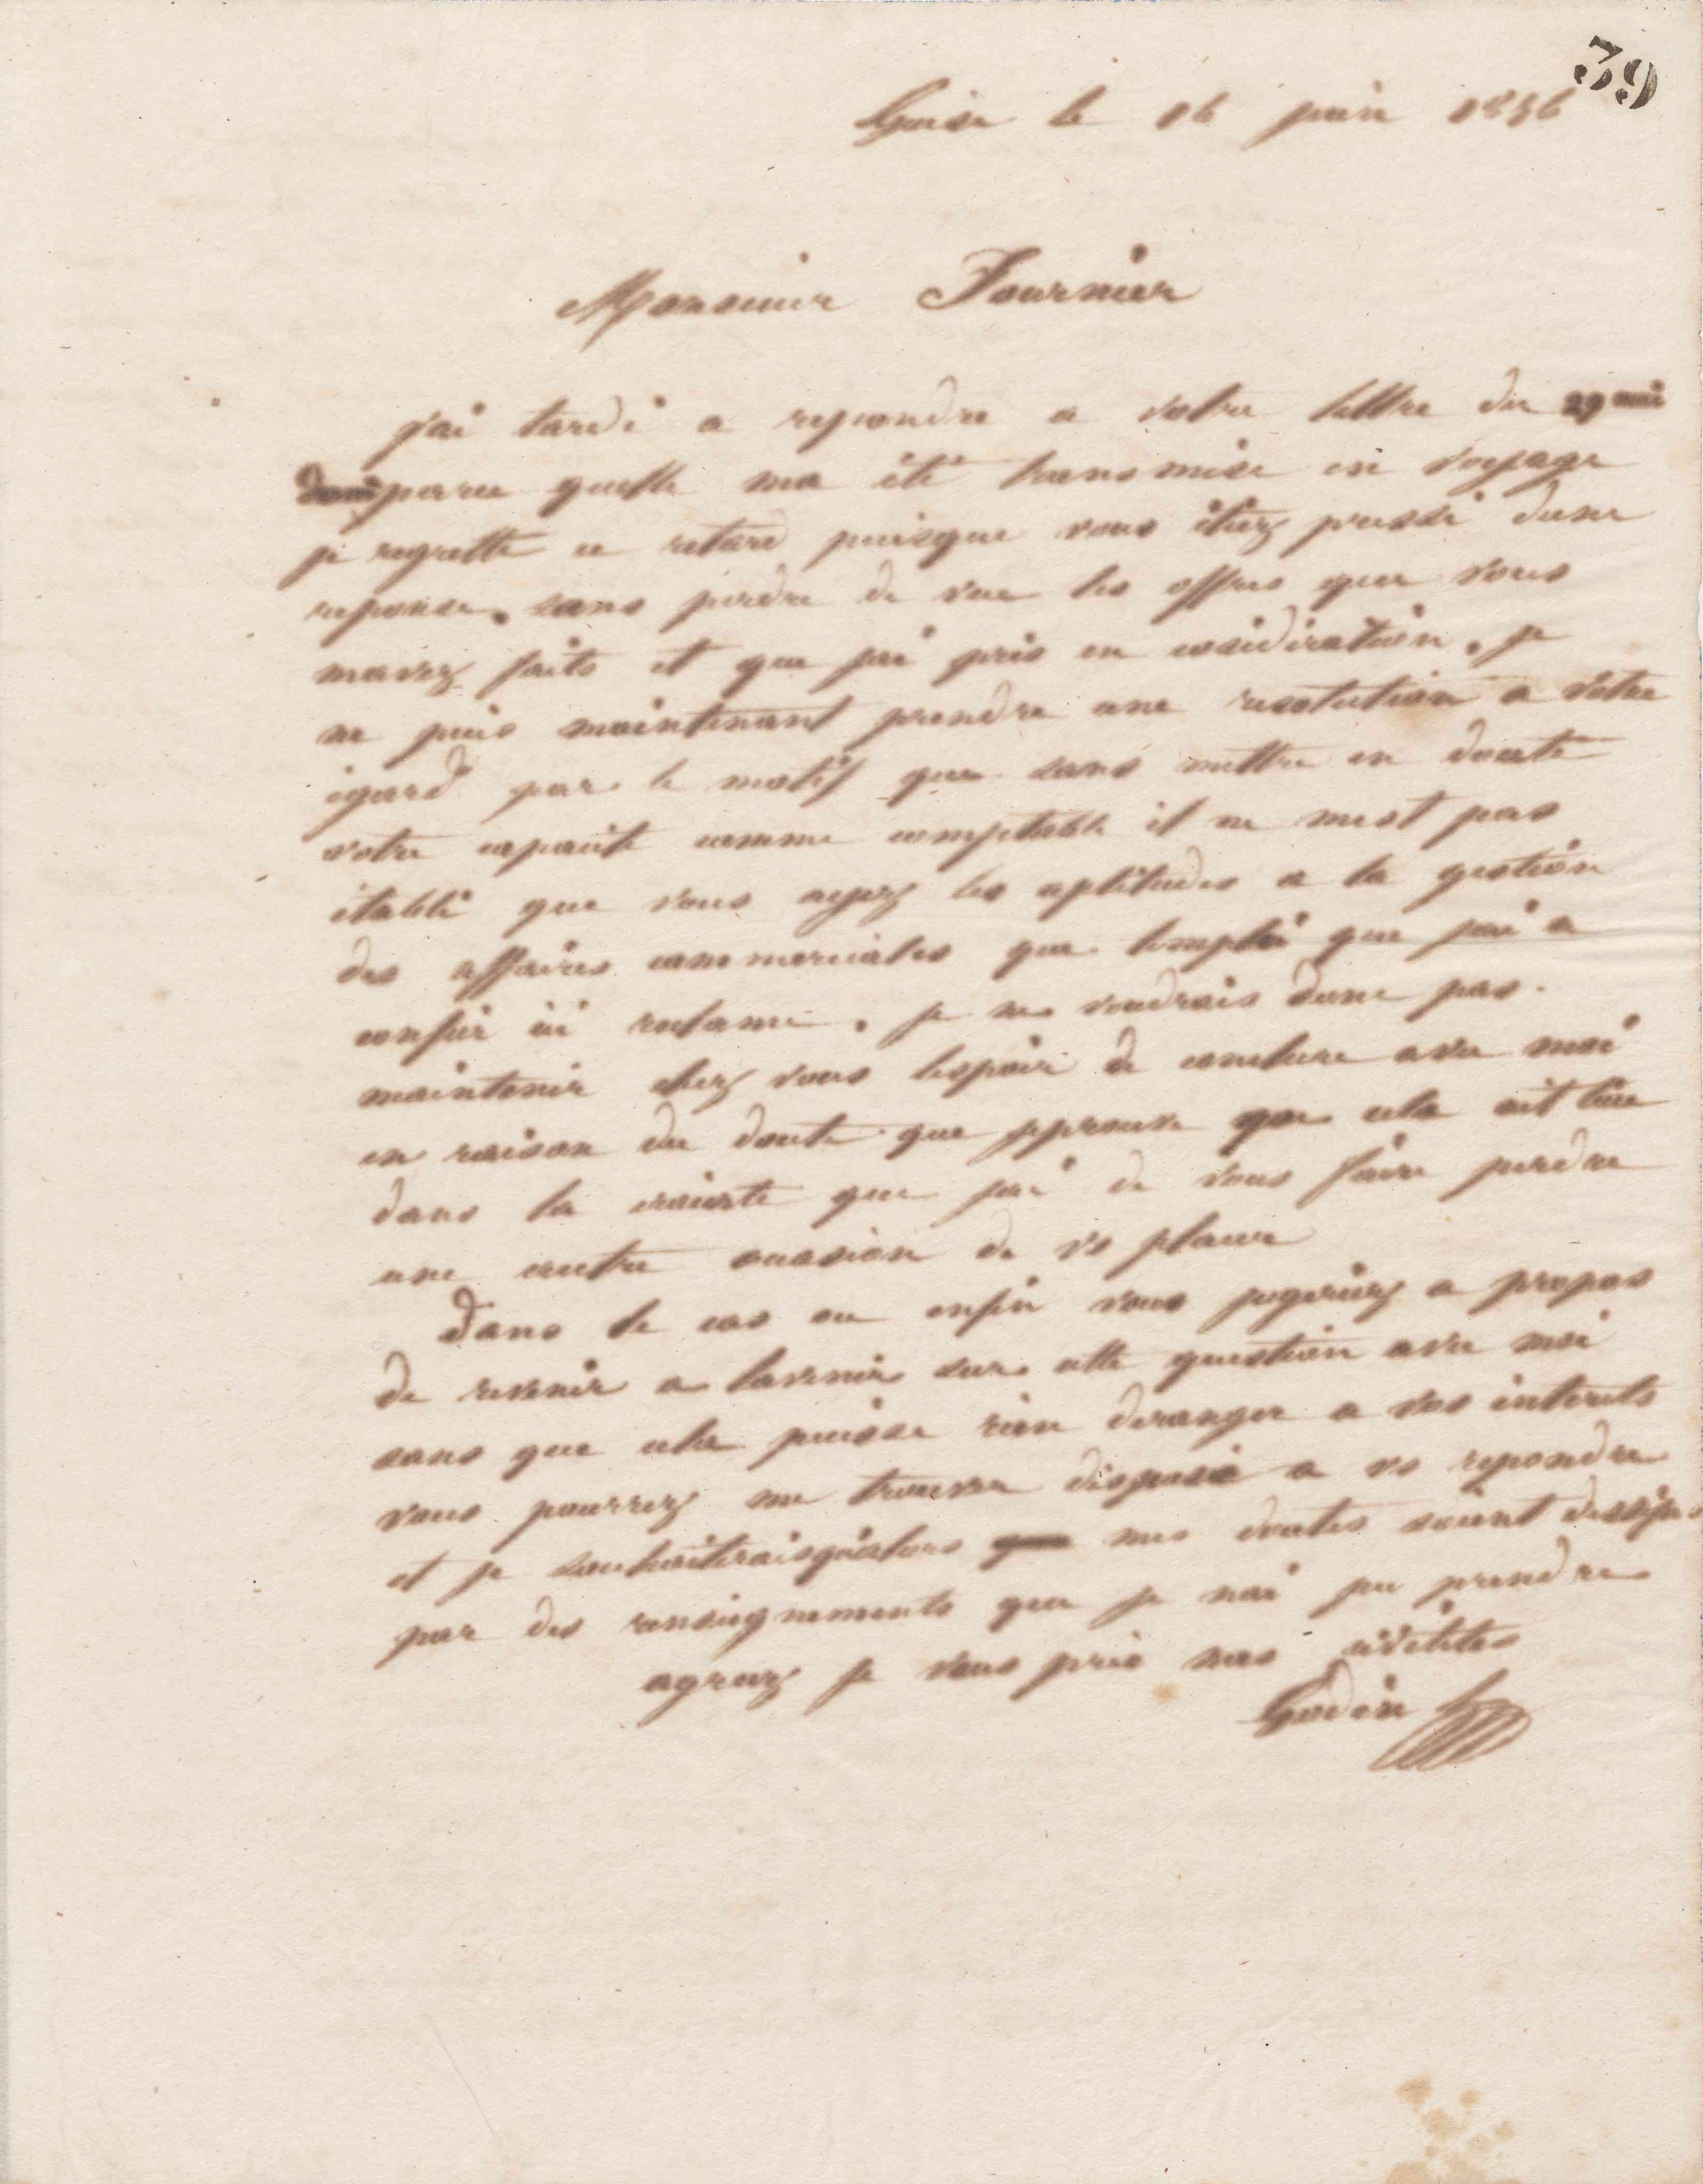 39
Guise le 16 juin 1856
Monsieur Fournier
j'ai tardé a repondre a votre lettre du 29 mai
parce quelle ma été transmise en voyage
je regrette ce retard puisque vous étiez pressé dune
reponse. sans perdre de vue les offres que vous
mavez faits et que jai pris en considération. je
ne puis maintenant prendre une resolution a votre
égard par le motif que sans mettre en doute
votre capacité comme comptable il ne mest pas
établi que vous ayez les aptitudes a la gestion
des affaires commerciales que lemploi que jai a
confier ici reclame. je ne voudrais donc pas
maintenir chez vous lespoir de conclure avec moi
en raison du doute que jeprouve que cela ait lieu
dans la crainte que jai de vous faire perdre
une autre occasion de vs placer
Dans le cas ou enfin vous jugeriez a propos
de revenir a lavenir sur cette question avec moi
sans que cela puisse rien deranger a vos interets
vous pourrez me trouver disposé a vs repondre
et je souhaiterais qualors mes doutes soient
par des renseignements que je nai pu prendre
agreez je vous prie mes civilités
Godin